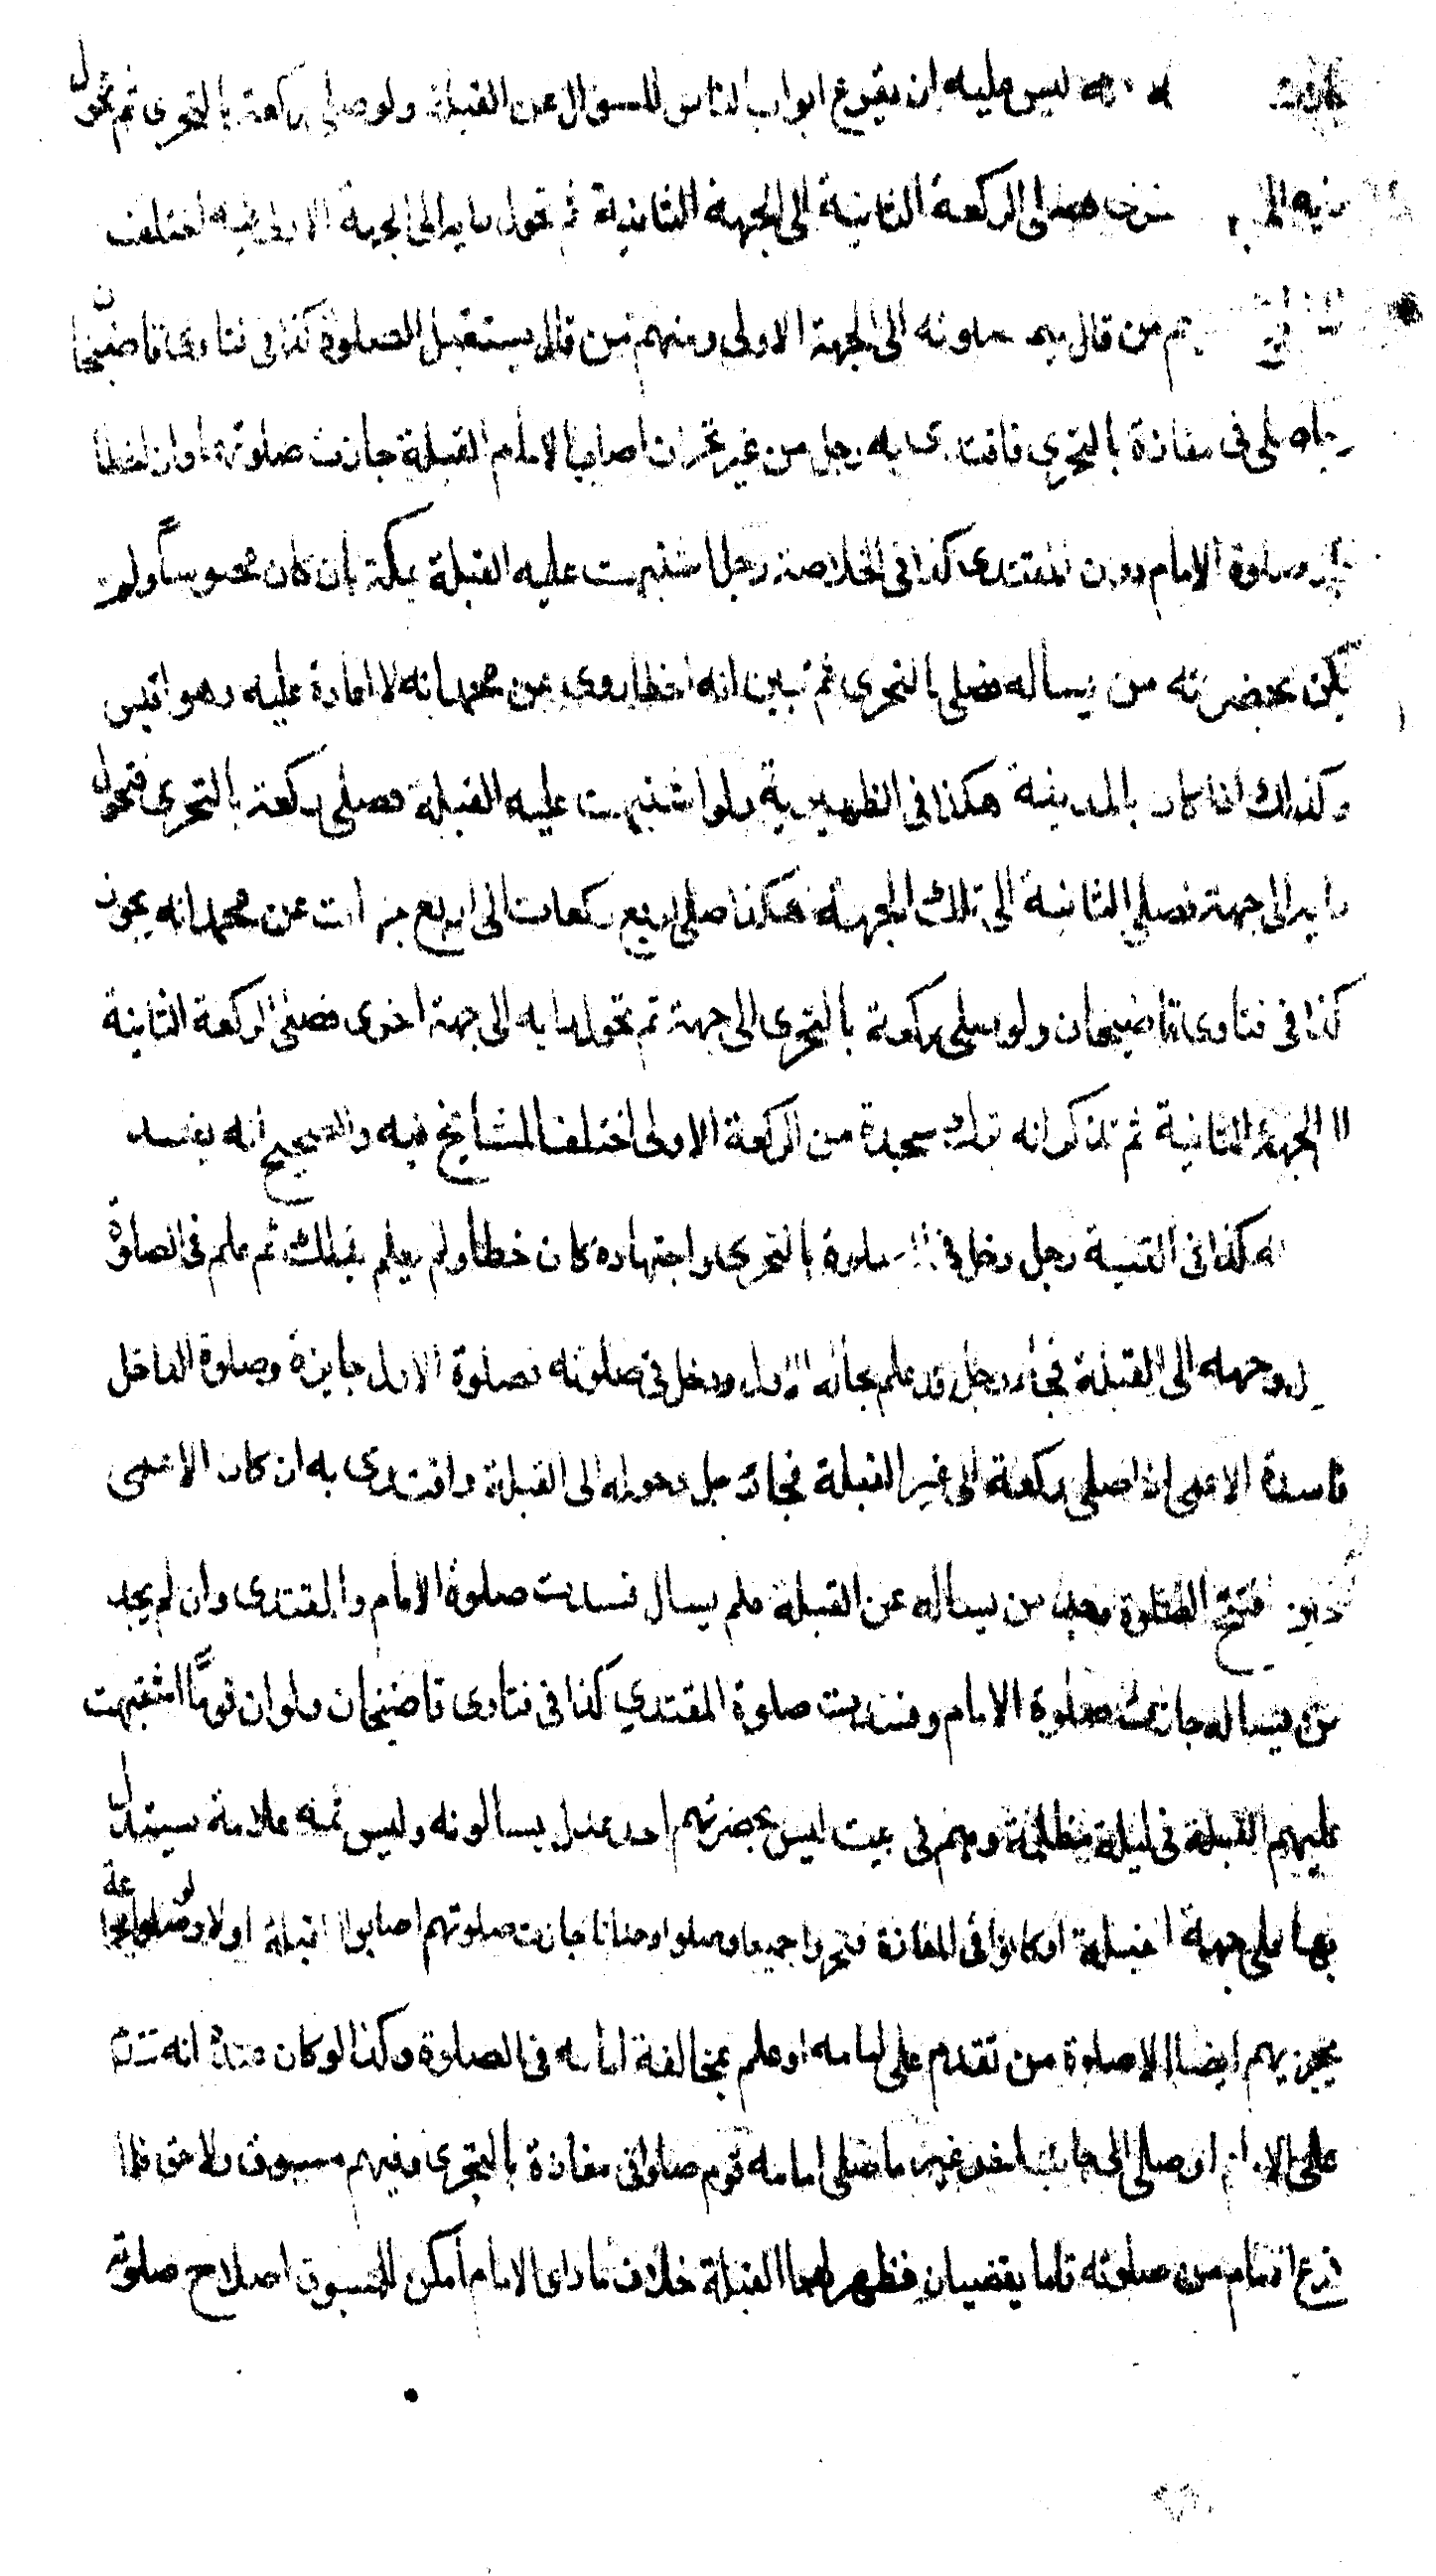 ليس عليه ان يقرع ابواب الناس للسوال عن القبلة ولو صلى ركعة بالتحرى ثم تحول
فصلى الركعة الثانية الى الجهة الثانية ثم تحول رايه الى الجهة الاولى فيه اختلف
من قال يتم صلوته الى الجهة الاولى ومنهم من قال يستقبل الصلوة كذا فى فتاوى قاضيخان
صلى فى مفازة بالتحرى فاقتدى به رجل من غير تحر ان اصاب الامام القبلة جازت صلوتهما وان اخطا
صلوة الامام دون المقتدى كذا فى الخلاصة رجل اشتبهت عليه القبلة بمكة بان كان محبوسا ولم
يكن بحضرته من يساله فصلى بالتحرى ثم تبين انه اخطا روى عن محمد انه لا اعادة عليه وهو اقيس
وكذلك اذا كان بالمدينة هكذا فى الظهيرية ولو اشتبهت عليه القبلة فصلى ركعة بالتحرى فتحول
رايه الى جهة فصلى الثانية الى تلك الجهة هكذا صلى اربع ركعات الى اربع جهات عن محمد انه يجوز
كذا فى فتاوى قاضيخان ولو صلى ركعة بالتحرى الى جهة ثم تحول رايه الى جهة اخرى فصلى الركعة الثانية
الجهة الثانية ثم تذكر انه ترك سجدة من الركعة الاولى اختلف المشايخ فيه والصحيح انه يفسد
كذا فى القنية رجل دخل فى الصلوة بالتحرى واجتهاده كان خطا ولم يعلم بذلك ثم علم فى الصلوة
وجهه الى القبلة فجاء رجل قد علم بحاله الاول ودخل فى صلوته فصلوة الاول جايزة وصلوة الداخل
فاسدة الاعمى اذا صلى ركعة الى غير القبلة فجاء رجل وحوله الى القبلة واقتدى به ان كان الاعمى
افتتح الصلوة وجد من يساله عن القبلة فلم يسال فسدت صلوة الامام والمقتدى وان لم يجد
من يساله جازت صلوة الامام وفسدت صلوة المقتدي كذا فى فتاوى قاضيخان ولو ان قومًا اشتبهت
عليهم القبلة فى ليلة مظلمة وهم فى بيت ليس بحضرتهم احد عدل يسالونه وليس ثمه علامة يستدل
بها على جهة القبلة او كانوا فى المفازة فتحروا جميعا وصلوا وحدانا جازت صلوتهم اصابوا القبلة اولا ولو صلوا بجماعة
يجزيهم ايضا الا صلوة من تقدم على امامه او علم بمخالفة امامه فى الصلوة وكذا لو كان عنده انه تقدم
على الامام او صلى الى جانب اخر غير ما صلى امامه قوم صلوا فى مفازة بالتحرى وفيهم مسبوق ولاحق فلما
فرغ الامام من صلوته قاما يقضيان فظهر لهما القبلة خلاف ما راى الامام امكن للمسبوق اصلاح صلوته